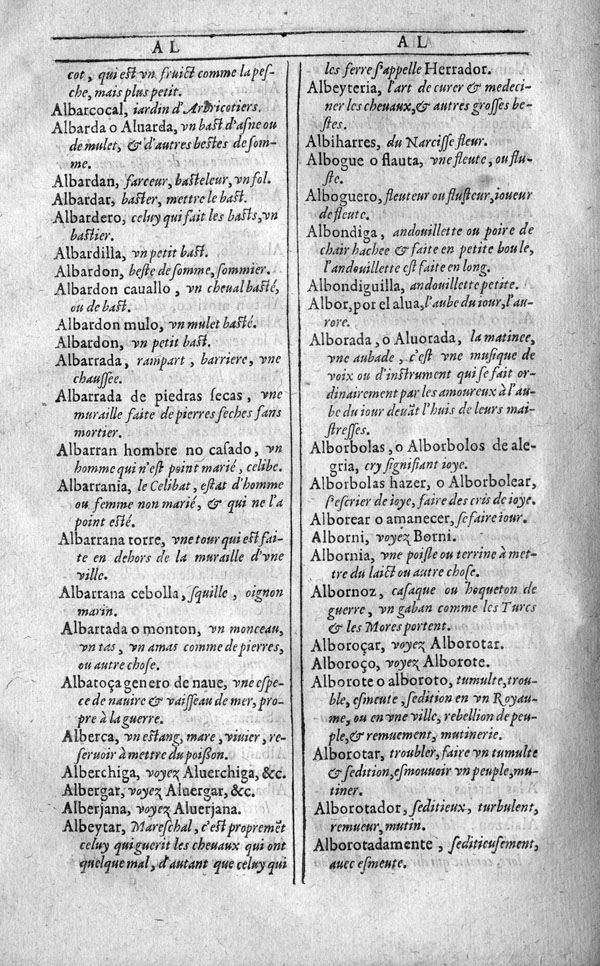 AL
cot, qui est vn fruict comme la pes-
che, mais plus petit.
Albarcocal, iardin d'Arbricotiers.
Albarda o Aluarda, vn bast d'asne ou
de mulet, & d'autres bestes de som-
me.
Albardan, farceur, basteleur, vn fol.
Albardar, baster, mettre le bast.
Albardero, celuy qui fait les basts, vn
bastier.
Albardilla, vn petit bast.
Albardon, beste de somme, sommier.
Albardon cauallo, vn cheual basté,
ou de bast.
Albardon mulo, vn mulet basté.
Albardon, vn petit bast.
Albarrada, rampart, barriere, vne
chaussee.
Albarrada de piedras secas, vne
muraille faite de pierres seches sans
mortier.
Albarran hombre no casado, vn
homme qui n'est point marié, celibe.
Albarrania, le Celibat, estat d'homme
ou femme non marié, & qui ne l'a
point esté.
Albarrana torre, vne tour qui est fai-
te en dehors de la muraille d'vne
ville.
Albarrana cebolla, squille, oignon
marin.
Albartada o monton, vn monceau,
vn tas, vn amas comme de pierres,
ou autre chose.
Albatoça genero de naue, vne espe-
ce de nauire & vaisseau de mer, pro-
pre à la guerre.
Alberca, vn estang, mare, viuier, re-
seruoir à mettre du poißon.
Alberchiga, voyez Aluerchiga, &c.
Albergar, voyez Aluergar, &c.
Alberjana, voyez Aluerjana.
Albeytar, Mareschal, c'est propremẽt
celuy qui guerit les cheuaux qui ont
quelque mal, d'autant que celuy qui
AL
les ferre s'appelle Herrador.
Albeyteria, l'art de curer & medeci-
ner les cheuaux, & autres grosses be-
stes.
Albiharres, du Narcisse fleur.
Albogue o flauta, vne fleute, ou flu-
ste.
Alboguero, fleuteur ou flusteur, ioueur
de fleute.
Albondiga, andouillette ou poire de
chair hachee & faite en petite boule,
l'andouillette est faite en long.
Albondiguilla, andouillette petite.
Albor, por el alua, l'aube du iour, l'au-
rore.
Alborada, o Aluorada, la matinee,
vne aubade, c'est vne musique de
voix ou d'instrument qui se fait or-
dinairement par les amoureux à l'au-
be du iour deuãt l'huis de leurs mai-
stresses.
Alborbolas, o Alborbolos de ale-
gria, cry signifiant ioye.
Alborbolas hazer, o Alborbolear,
s'escrier de ioye, faire des cris de ioye.
Alborear o amanecer, se faire iour.
Alborni, voyez Borni.
Albornia, vne poisle ou terrine à met-
tre du laict ou autre chose.
Albornoz, casaque ou hoqueton de
guerre, vn gaban comme les Turcs
& les Mores portent.
Alboroçar, voyez Alborotar.
Alboroço, voyez Alborote.
Alborote o alboroto, tumulte, trou-
ble, esmeute, sedition en vn Royau-
me, ou en vne ville, rebellion de peu-
ple, & remuement, mutinerie.
Alborotar, troubler, faire vn tumulte
& sedition, esmouuoir vn peuple, mu-
tiner.
Alborotador, seditieux, turbulent,
remueur, mutin.
Alborotadamente, seditieusement,
auec esmeute.